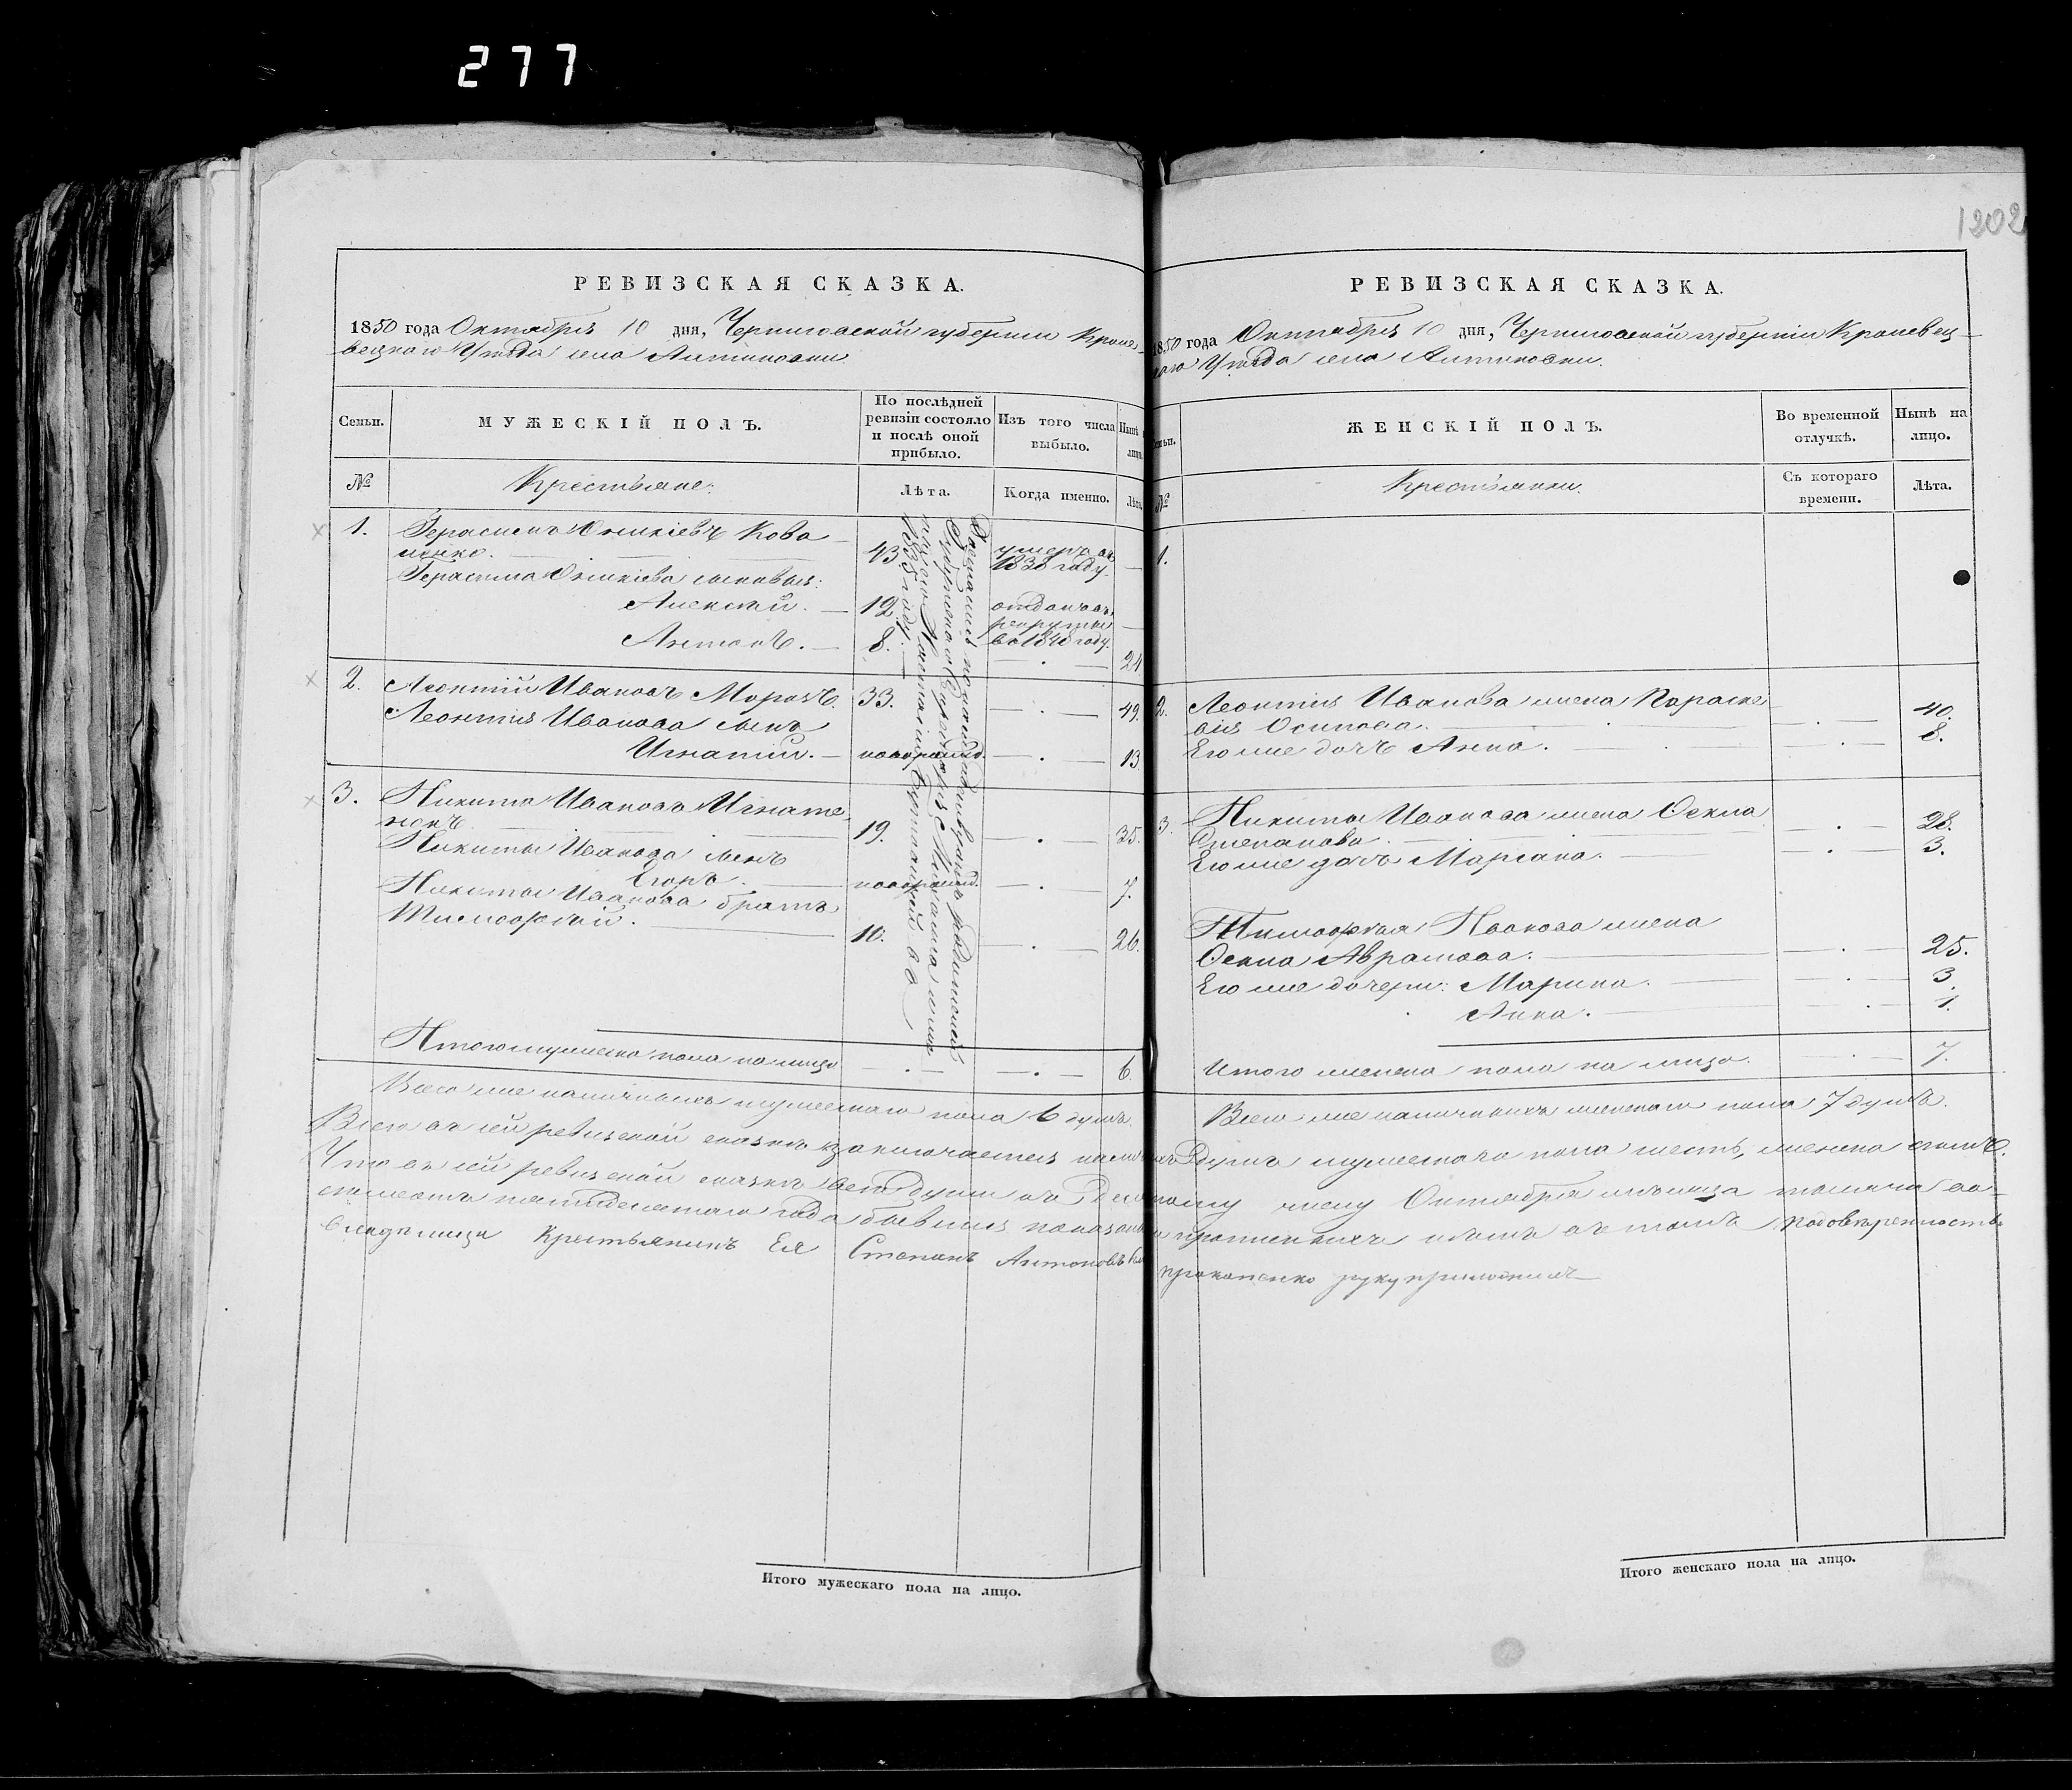 277
1202
РЕВИЗСКАЯ СКАЗКА.
1850 года Октября 10 дня, Черниговской губернии Кроле-
вецкаго Уѣзда села Литиновки
Семьи.
МУЖЕСКІЙ ПОЛЪ.
По послѣдней
ревизіи состояло
и послѣ оной
прибыло.
Изъ того числа
выбыло.
Нынѣ
лицо
№
Крестьяне:
Лѣта.
Когда именно.
Лѣта
1. Герасимъ Оникіевъ Кова
ленко. 43. умеръ въ
1838 году.
Герасима Оникіева сыновья:
Алексѣй. 12. отданъ въ
рекруты
Антонъ. 8. въ 1840 году. 24
2. Леонтій Ивановъ Морозъ. 33. 49.
Леонтія Иванова сынъ
Игнатій. новорожд. 13.
3. Никита Ивановъ Игнате
нокъ 19. 35.
Никиты Иванова сынъ
Егоръ. новорожд. 7.
Никиты Иванова братъ
Тимофѣй. 10. 26.
Итого мужеска пола на лицо 6.
Всего же наличныхъ мужескаго пола 6 душъ.
РЕВИЗСКАЯ СКАЗКА.
1850 года Октября 10 дня, Черниговской губерніи Кролевец-
каго Уѣзда села Литиновки.
Семьи.
ЖЕНСКІЙ ПОЛЪ.
Во временной
отлучкѣ.
Нынѣ на
лицо.
№
Крестьянки.
Съ котораго
времени.
Лѣта.
1.
2. Леонтія Иванова жена Параске
вія Осипова. 40.
Его же дочь Анна. 8.
3. Никиты Иванова жена Ѳекла
Степанова. 28.
Его же дочь Маріана. 3.
Тимофѣя Иванова жена
Ѳекла Аврамова. 25.
Его же дочери: Марина. 3.
Анна. 1.
Итого женска пола на лицо. 7.
Всего же наличныхъ женскаго пола 7 душъ.
Всего въ сей ревизской сказкѣ заключается душъ мужескаго пола шесть, женска семь.
Что въ сей ревизской сказкѣ всѣ души къ десятому числу Октября мѣсяца тысяча во-
семьсотъ пятидесятаго года
владѣлицы Крестьянинъ Ея Степанъ Антоновъ Прокопенко руку приложилъ
Итого мужескаго пола на лицо.
Итого женскаго пола на лицо.